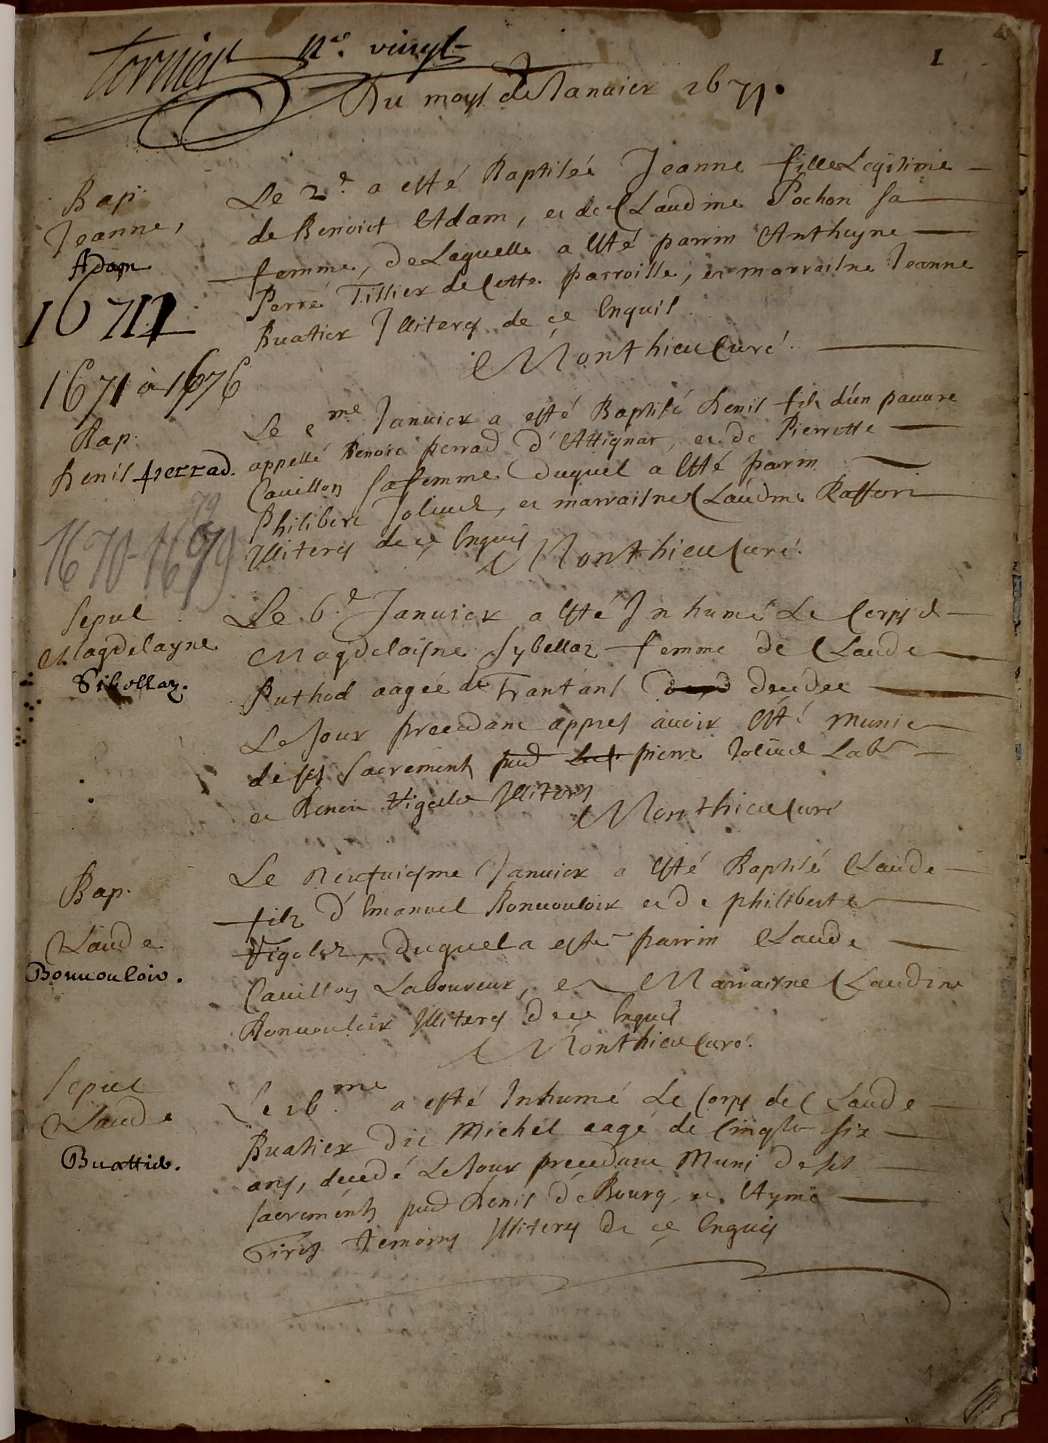 1
tornier
nro. vingt
Du moys de Janvier 1671.
Bap.
Jeanne,
Adam
1671
1671 à 1676
Le 2d. a esté Baptisée Jeanne fille Legitime
de Benoict Adam, et de Claudine Pochon sa
femme, de Laquelle a esté parrin Anthoyne
Perré Tissier de Cette parroisse, et marraisne Jeanne
Buatier Illiterés de ce Enquis
Monthieu Curé.
Bap.
Denis perrad.
1670-1679
79
Le 5me Janvier a esté Baptisé Denis fils d'un pauvre
appellé Benoict perrad d'Attignat, et de Pierrette
Cavillon sa femme Duquel a esté parrin
Philibert Jolivet, et marraisne Claudine
Illiterés de ce Enquis Monthieu Curé.
Sepul
Magdelayne
Sibellaz.
Le 6d Janvier a esté Inhumé Le Corps de
Magdelaisne Sybellaz femme de Claude
Buthod aagée de Trantans decedee
Le Jour precedant appres avoir esté munie
de ses Sacrements pierre Jolivet Labr
et Benoit Illiterés
Monthieu Curé
Bap.
Claude
Bonvouloir.
Le neufviesme Janvier a esté Baptisé Claude
filz d'Emanuel Bonvouloir et de philiberte
Duquel a esté parrin Claude
Cavillon Laboureur, et Marraisne Claudine
Bonvouloir Illiterés de ce Enquis
Monthieu Curé.
Sepul
Claude
Buattier.
Le 16me a esté Inhumé Le Corps de Claude
Buatier dit Michel aagé de Cinqte six
ans, decedé Le Jour precedant Muni de ses
sacrements pnt Denis de Bourg et Aymé
temoins Illiterés De ce Enquis